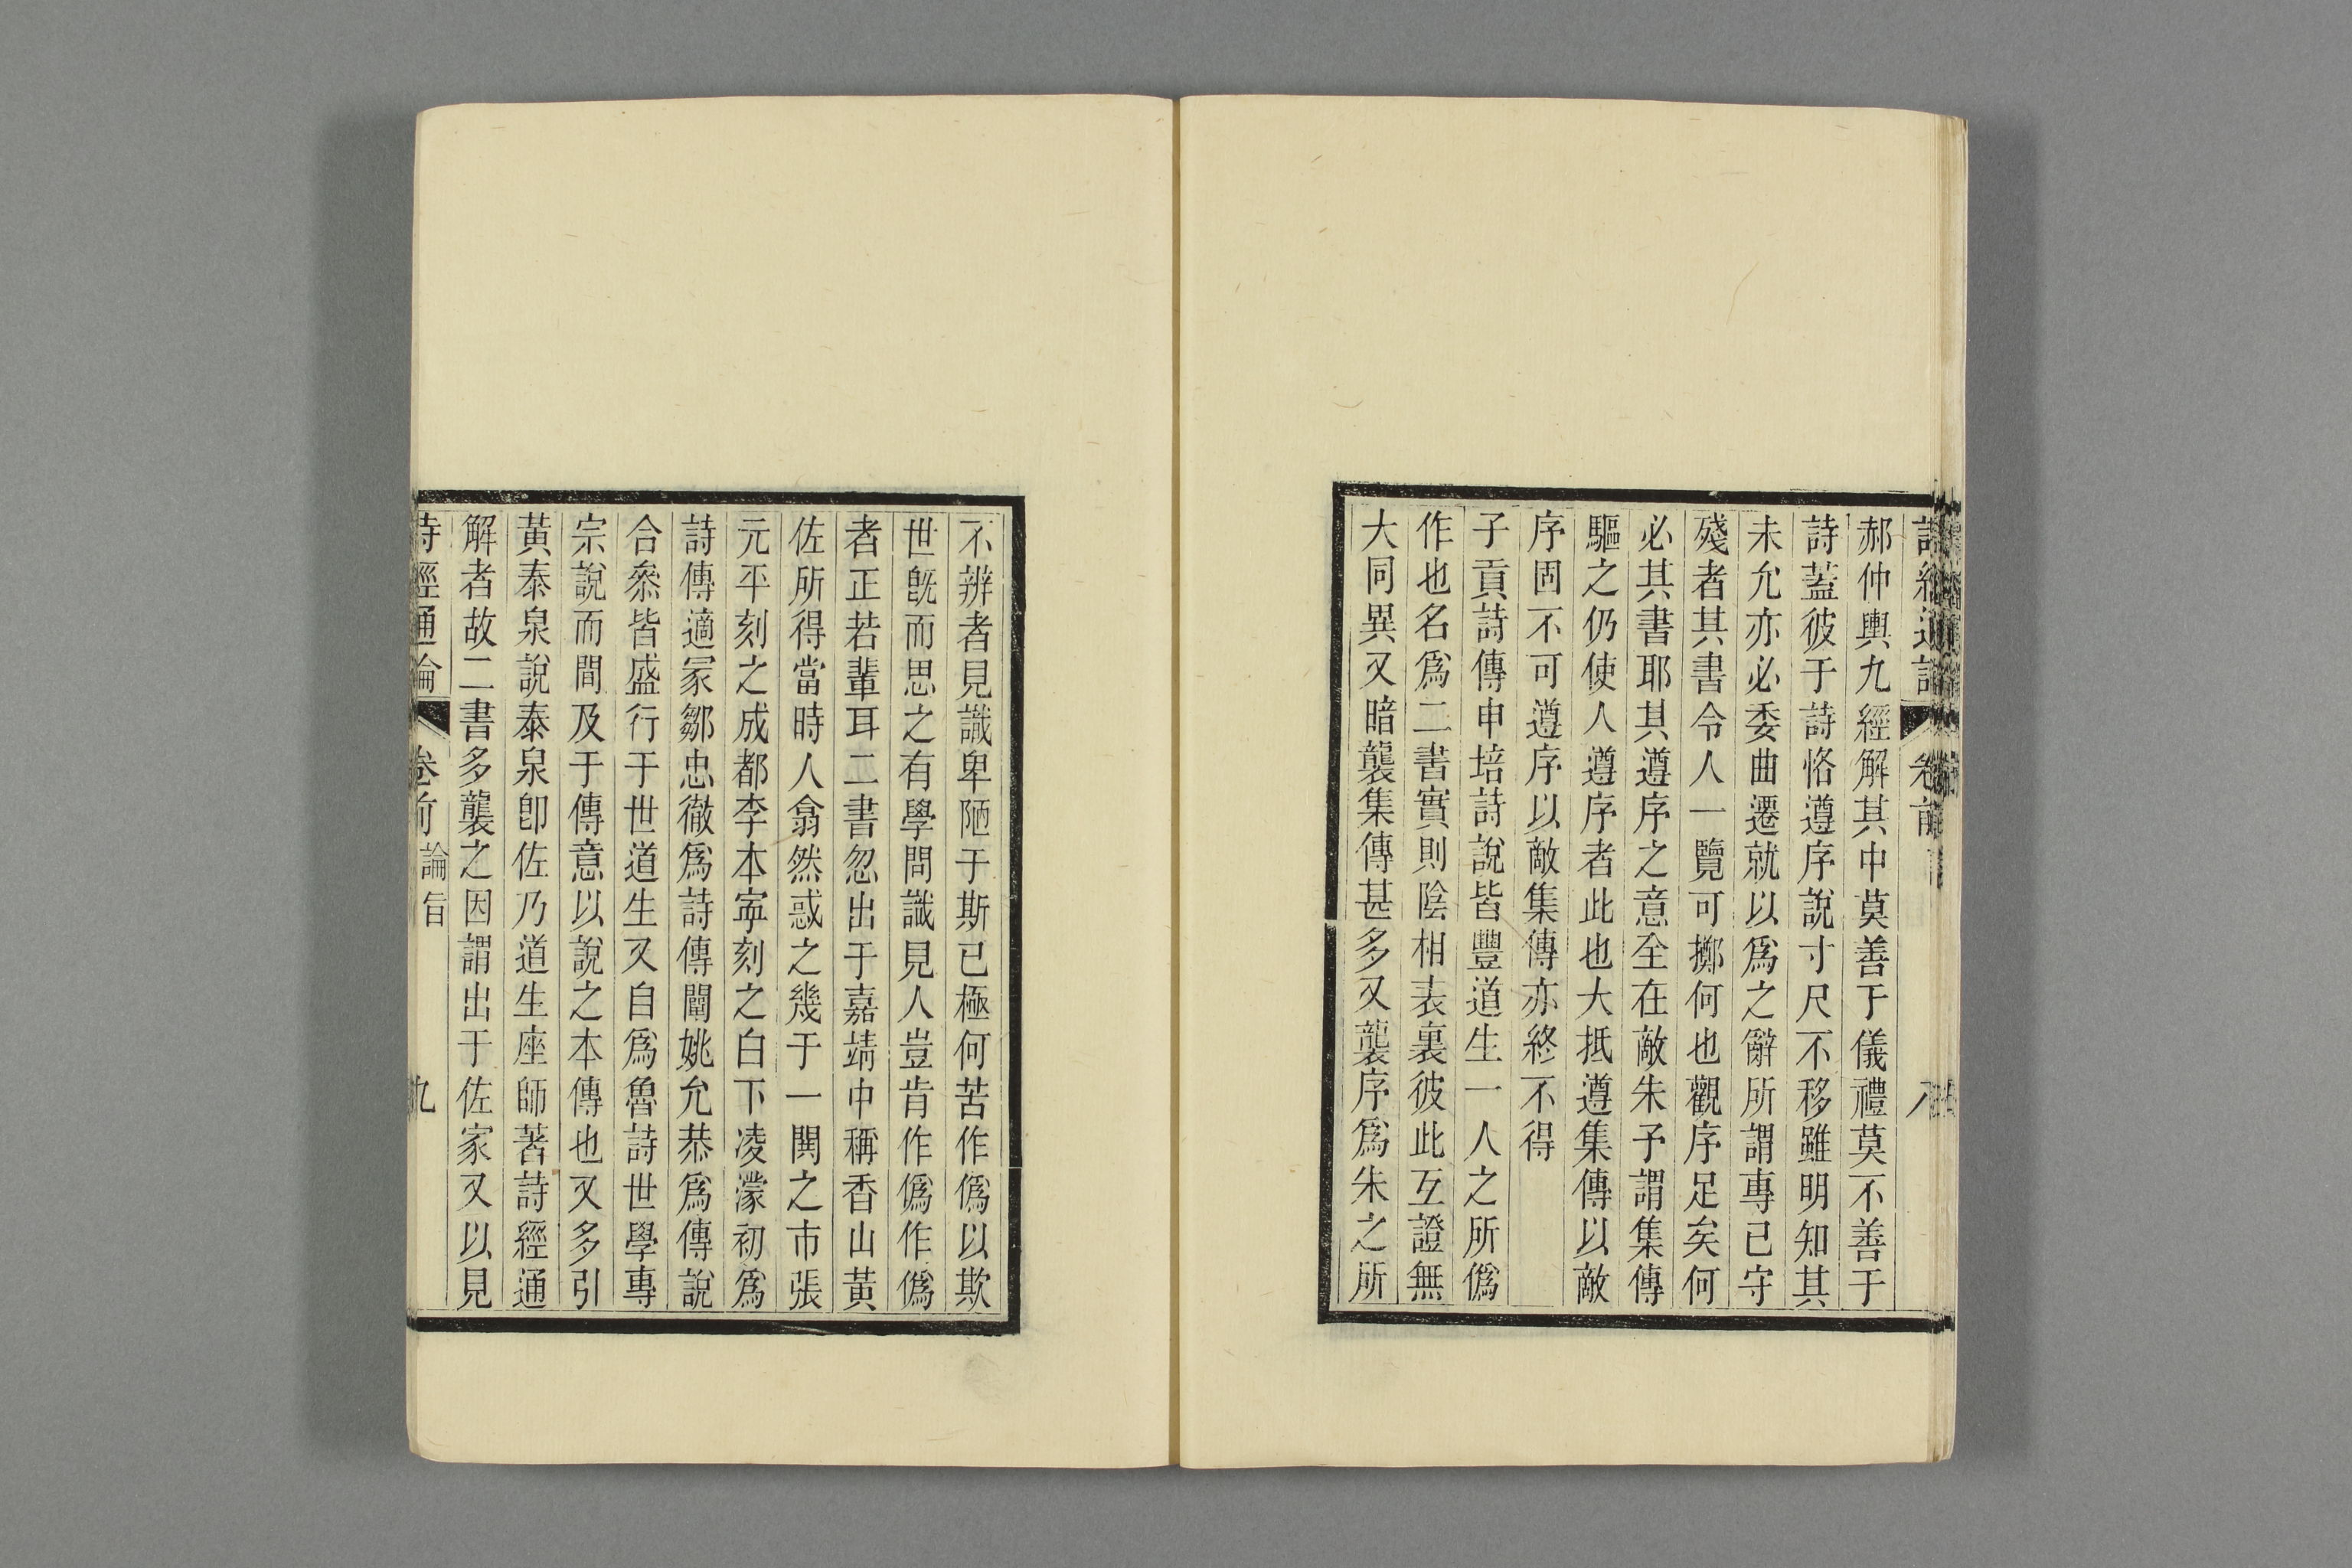 郝仲輿九經解其中莫善于儀禮莫不善于
詩蓋彼于詩恪遵序說寸尺不移雖明知其
未允亦必委曲遷就以爲之辭所謂專己守
殘者其書令人一覽可擲何也觀序足矣何
必其書耶其遵序之意全在敵朱予謂集傳
驅之仍使人遵序者此也大抵遵集傳以敵
序固不可遵序以敵集傳亦終不得
子貢詩傳申培詩說皆豐道生一人之所僞
作也名爲二書實則陰相表裏彼此互證無
大同異又暗襲集傳甚多又襲序爲朱之所
不辨者見識卑陋于斯已極何苦作僞以欺
世旣而思之有學問識見人豈肯作僞作僞
者正若輩耳二書忽出于嘉靖中稱香山黃
佐所得當時人翕然惑之幾于一鬨之市張
元平刻之成都李本寧刻之白下凌濛初爲
詩傳適冢鄒忠徹爲詩傳闡姚允恭爲傳說
合叅皆盛行于世道生又自爲魯詩世學專
宗說而間及于傳意以說之本傳也又多引
黃泰泉說泰泉卽佐乃道生座師著詩經通
解者故二書多襲之因謂出于佐家又以見
詩經通論 卷前 論旨 九